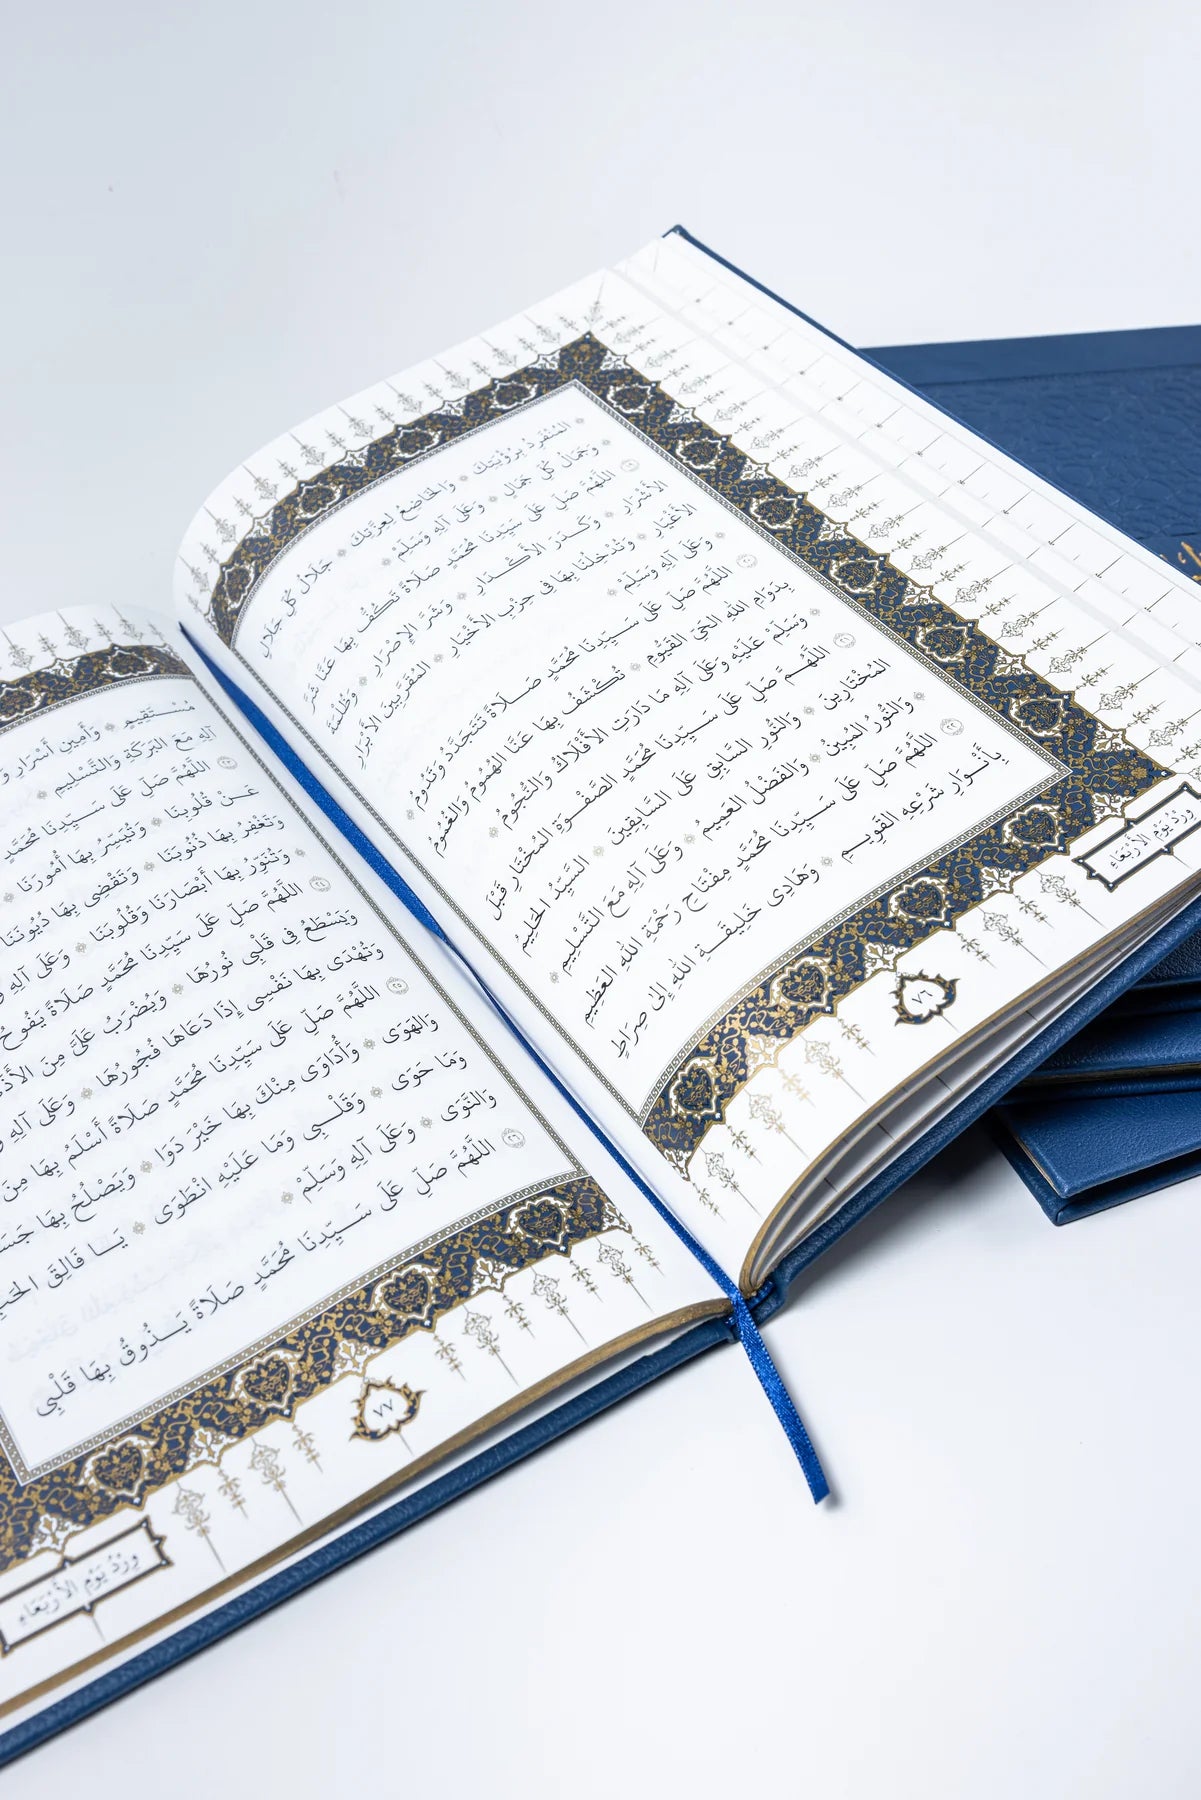 المُنْفَرِدُ بِرُؤْيَتِكَ ❊ وَالخَاضِعُ لِعِزَّتِكَ ❊ جَلَالُ كُلِّ جَلَالٍ
❊ وَجَمَالُ كُلِّ جَمَالٍ ❊ وَعَلَى آلِهِ وَسَلِّمْ ❊
اللَّهُمَّ صَلِّ عَلَى سَيِّدِنَا مُحَمَّدٍ صَلَاةً تَكُفُّ بِهَا عَنَّا شَرَّ
الأَشْرَارِ ❊ وَكَدَرَ الأَكْدَارِ ❊ وَشَرَرَ الإِصْرَارِ ❊ وَظُلْمَةَ
الأَغْيَارِ ❊ وَتُدْخِلُنَا بِهَا فِي حِزْبِ الأَخْيَارِ ❊ المُقَرَّبِينَ الأَبْرَارِ
❊ وَعَلَى آلِهِ وَسَلِّمْ ❊
٢٠ اللَّهُمَّ صَلِّ عَلَى سَيِّدِنَا مُحَمَّدٍ صَلَاةً تَتَجَدَّدُ وَتَدُومُ ❊
بِدَوَامِ اللهِ الحَيِّ القَيُّومِ ❊ تُكْشَفُ بِهَا عَنَّا الهُمُومُ وَالغُمُومُ
❊ وَسَلِّمْ عَلَيْهِ وَعَلَى آلِهِ مَا دَارَتِ الأَفْلَاكُ وَالنُّجُومُ ❊
٢١ اللَّهُمَّ صَلِّ عَلَى سَيِّدِنَا مُحَمَّدٍ الصَّفْوَةِ المُخْتَارِ قَبْلَ
المُخْتَارِينَ ❊ وَالنُّورِ السَّابِقِ عَلَى السَّابِقِينَ ❊ السَّيِّدُ الحَلِيمُ
❊ وَالنُّورُ المُبِينُ ❊ وَالفَضْلُ العَمِيمُ ❊ وَعَلَى آلِهِ مَعَ التَّسْلِيمِ ❊
٢٢ اللَّهُمَّ صَلِّ عَلَى سَيِّدِنَا مُحَمَّدٍ مِفْتَاحِ رَحْمَةِ اللهِ العَظِيمِ
بِأَنْوَارِ شَرْعِهِ القَوِيمِ ❊ وَهَادِي خَلِيقَةِ اللهِ إِلَى صِرَاطٍ
وِرْدُ يَوْمِ الأَرْبَعَاءِ
٧٦
مُسْتَقِيمٍ ❊ وَأَمِينِ أَسْرَارِ
آلِهِ مَعَ البَرَكَةِ وَالتَّسْلِيمِ ❊
٢٣ اللَّهُمَّ صَلِّ عَلَى سَيِّدِنَا مُحَمَّدٍ
عَنْ قُلُوبِنَا ❊ وَتُيَسِّرُ بِهَا أُمُورَنَا ❊
وَتَغْفِرُ بِهَا ذُنُوبَنَا ❊ وَتَقْضِي بِهَا دُيُونَنَا
❊ وَتُنَوِّرُ بِهَا أَبْصَارَنَا وَقُلُوبَنَا ❊ وَعَلَى آلِهِ
٢٤ اللَّهُمَّ صَلِّ عَلَى سَيِّدِنَا مُحَمَّدٍ صَلَاةً يَفُوحُ
وَيَسْطَعُ فِي قَلْبِي نُورُهَا ❊ وَيُضْرَبُ عَلَيَّ مِنَ
وَتُهْدَى بِهَا نَفْسِي إِذَا دَعَاهَا فُجُورُهَا ❊ وَعَلَى آلِهِ
٢٥ اللَّهُمَّ صَلِّ عَلَى سَيِّدِنَا مُحَمَّدٍ صَلَاةً أَسْلَمُ بِهَا مِنَ
وَالهَوَى ❊ وَأُدَاوَى مِنْكَ بِهَا خَيْرَ دَوَا ❊ وَيَصْلُحُ بِهَا
وَمَا حَوَى ❊ وَقَلْبِي وَمَا عَلَيْهِ انْطَوَى ❊ يَا فَالِقَ
وَالنَّوَى ❊ وَعَلَى آلِهِ وَسَلِّمْ ❊
٢٦ اللَّهُمَّ صَلِّ عَلَى سَيِّدِنَا مُحَمَّدٍ صَلَاةً يَذُوقُ بِهَا قَلْبِي
٧٧
وِرْدُ يَوْمِ الأَرْبَعَاءِ